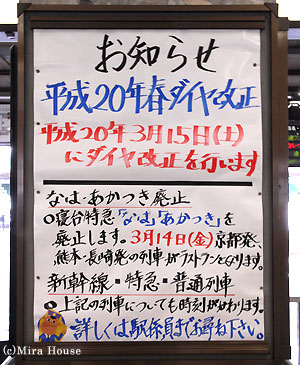 お知らせ
平成20年春ダイヤ改正
平成20年3月15日(土)
にダイヤ改正を行います
なは・あかつき廃止
○寝台特急「なは」「あかつき」を
廃止します。3月14日(金)京都発、
熊本・長崎発の列車がラストランとなります。
新幹線・特急・普通列車
○上記の列車についても時刻がかわります。
詳しくは駅係員までお尋ね下さい。
(c)Mira House